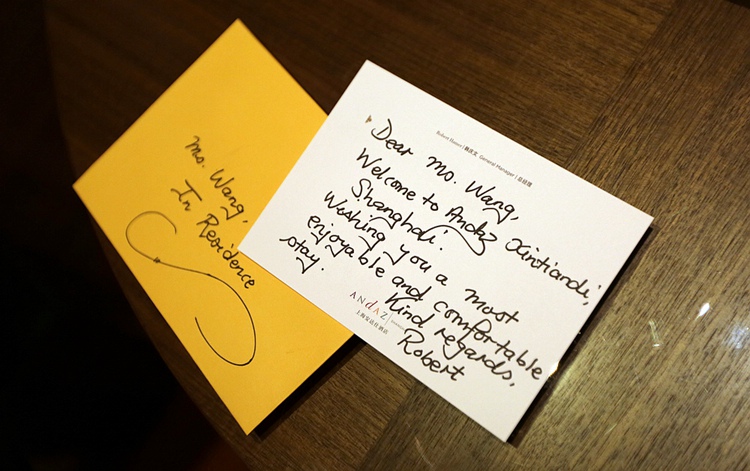 Ms. Wang,
In Residence
General Manager | 总经理
Dear Ms. Wang,
Welcome to Andaz Xintiandi,
Shanghai.
Wishing you a most
enjoyable and comfortable
stay.
Kind regards,
Robert
ANdAZ
上海安达仕酒店